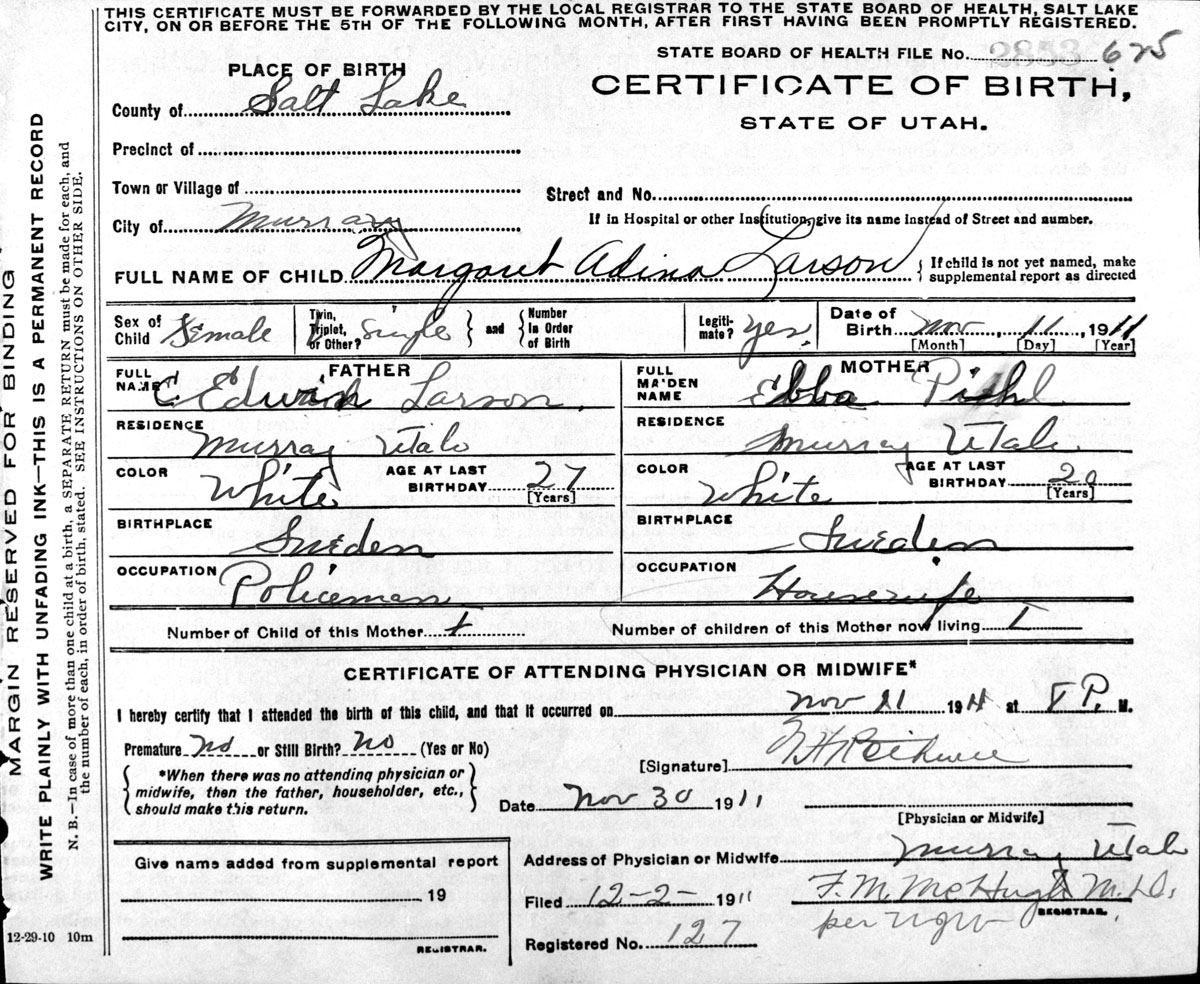 THIS CERTIFICATE MUST BE FORWARDED BY THE LOCAL REGISTRAR TO THE STATE BOARD OF HEALTH, SALT LAKE
CITY, ON OR BEFORE THE 5TH OF THE FOLLOWING MONTH, AFTER FIRST HAVING BEEN PROMPTLY REGISTERED.
STATE BOARD OF HEALTH FILE No. 2853 675
PLACE OF BIRTH
CERTIFICATE OF BIRTH,
STATE OF UTAH.
County of Salt Lake
Precinct of
Town or Village of
Street and No.
City of Murray
If in Hospital or other Institution, give its name instead of Street and number.
FULL NAME OF CHILD Margaret Adina Larson { If child is not yet named, make supplemental report as directed
Sex of Child Female
Twin, Triplet, or Other? Single } and { Number in Order of Birth
Legitimate? Yes.
Date of Birth Nov, 11, 1911
[Month] [Day] [Year]
FATHER
FULL NAME C. Edwin Larson.
RESIDENCE Murray Utah
COLOR White AGE AT LAST BIRTHDAY 27 [Years]
BIRTHPLACE Sweden
OCCUPATION Policeman
MOTHER
FULL MAIDEN NAME Ebba Pihl
RESIDENCE Murray Utah
COLOR White AGE AT LAST BIRTHDAY 20 [Years]
BIRTHPLACE Sweden
OCCUPATION Housewife
Number of Child of this Mother 1 Number of children of this Mother now living 1
CERTIFICATE OF ATTENDING PHYSICIAN OR MIDWIFE*
I hereby certify that I attended the birth of this child, and that it occurred on Nov 11 1911 at P. M.
Premature No or Still Birth? No (Yes or No)
[Signature]
{ *When there was no attending physician or midwife, then the father, householder, etc., should make this return. }
Date Nov 30 1911
[Physician or Midwife]
Give name added from supplemental report
19
REGISTRAR.
Address of Physician or Midwife Murray Utah
Filed 12-2- 1911 F. M. McHugh M.D.
REGISTRAR.
per
Registered No. 127
12-29-10 10m
MARGIN RESERVED FOR BINDING
WRITE PLAINLY WITH UNFADING INK—THIS IS A PERMANENT RECORD
N. B.—In case of more than one child at a birth, a SEPARATE RETURN must be made for each, and
the number of each, in order of birth, stated. SEE INSTRUCTIONS ON OTHER SIDE.